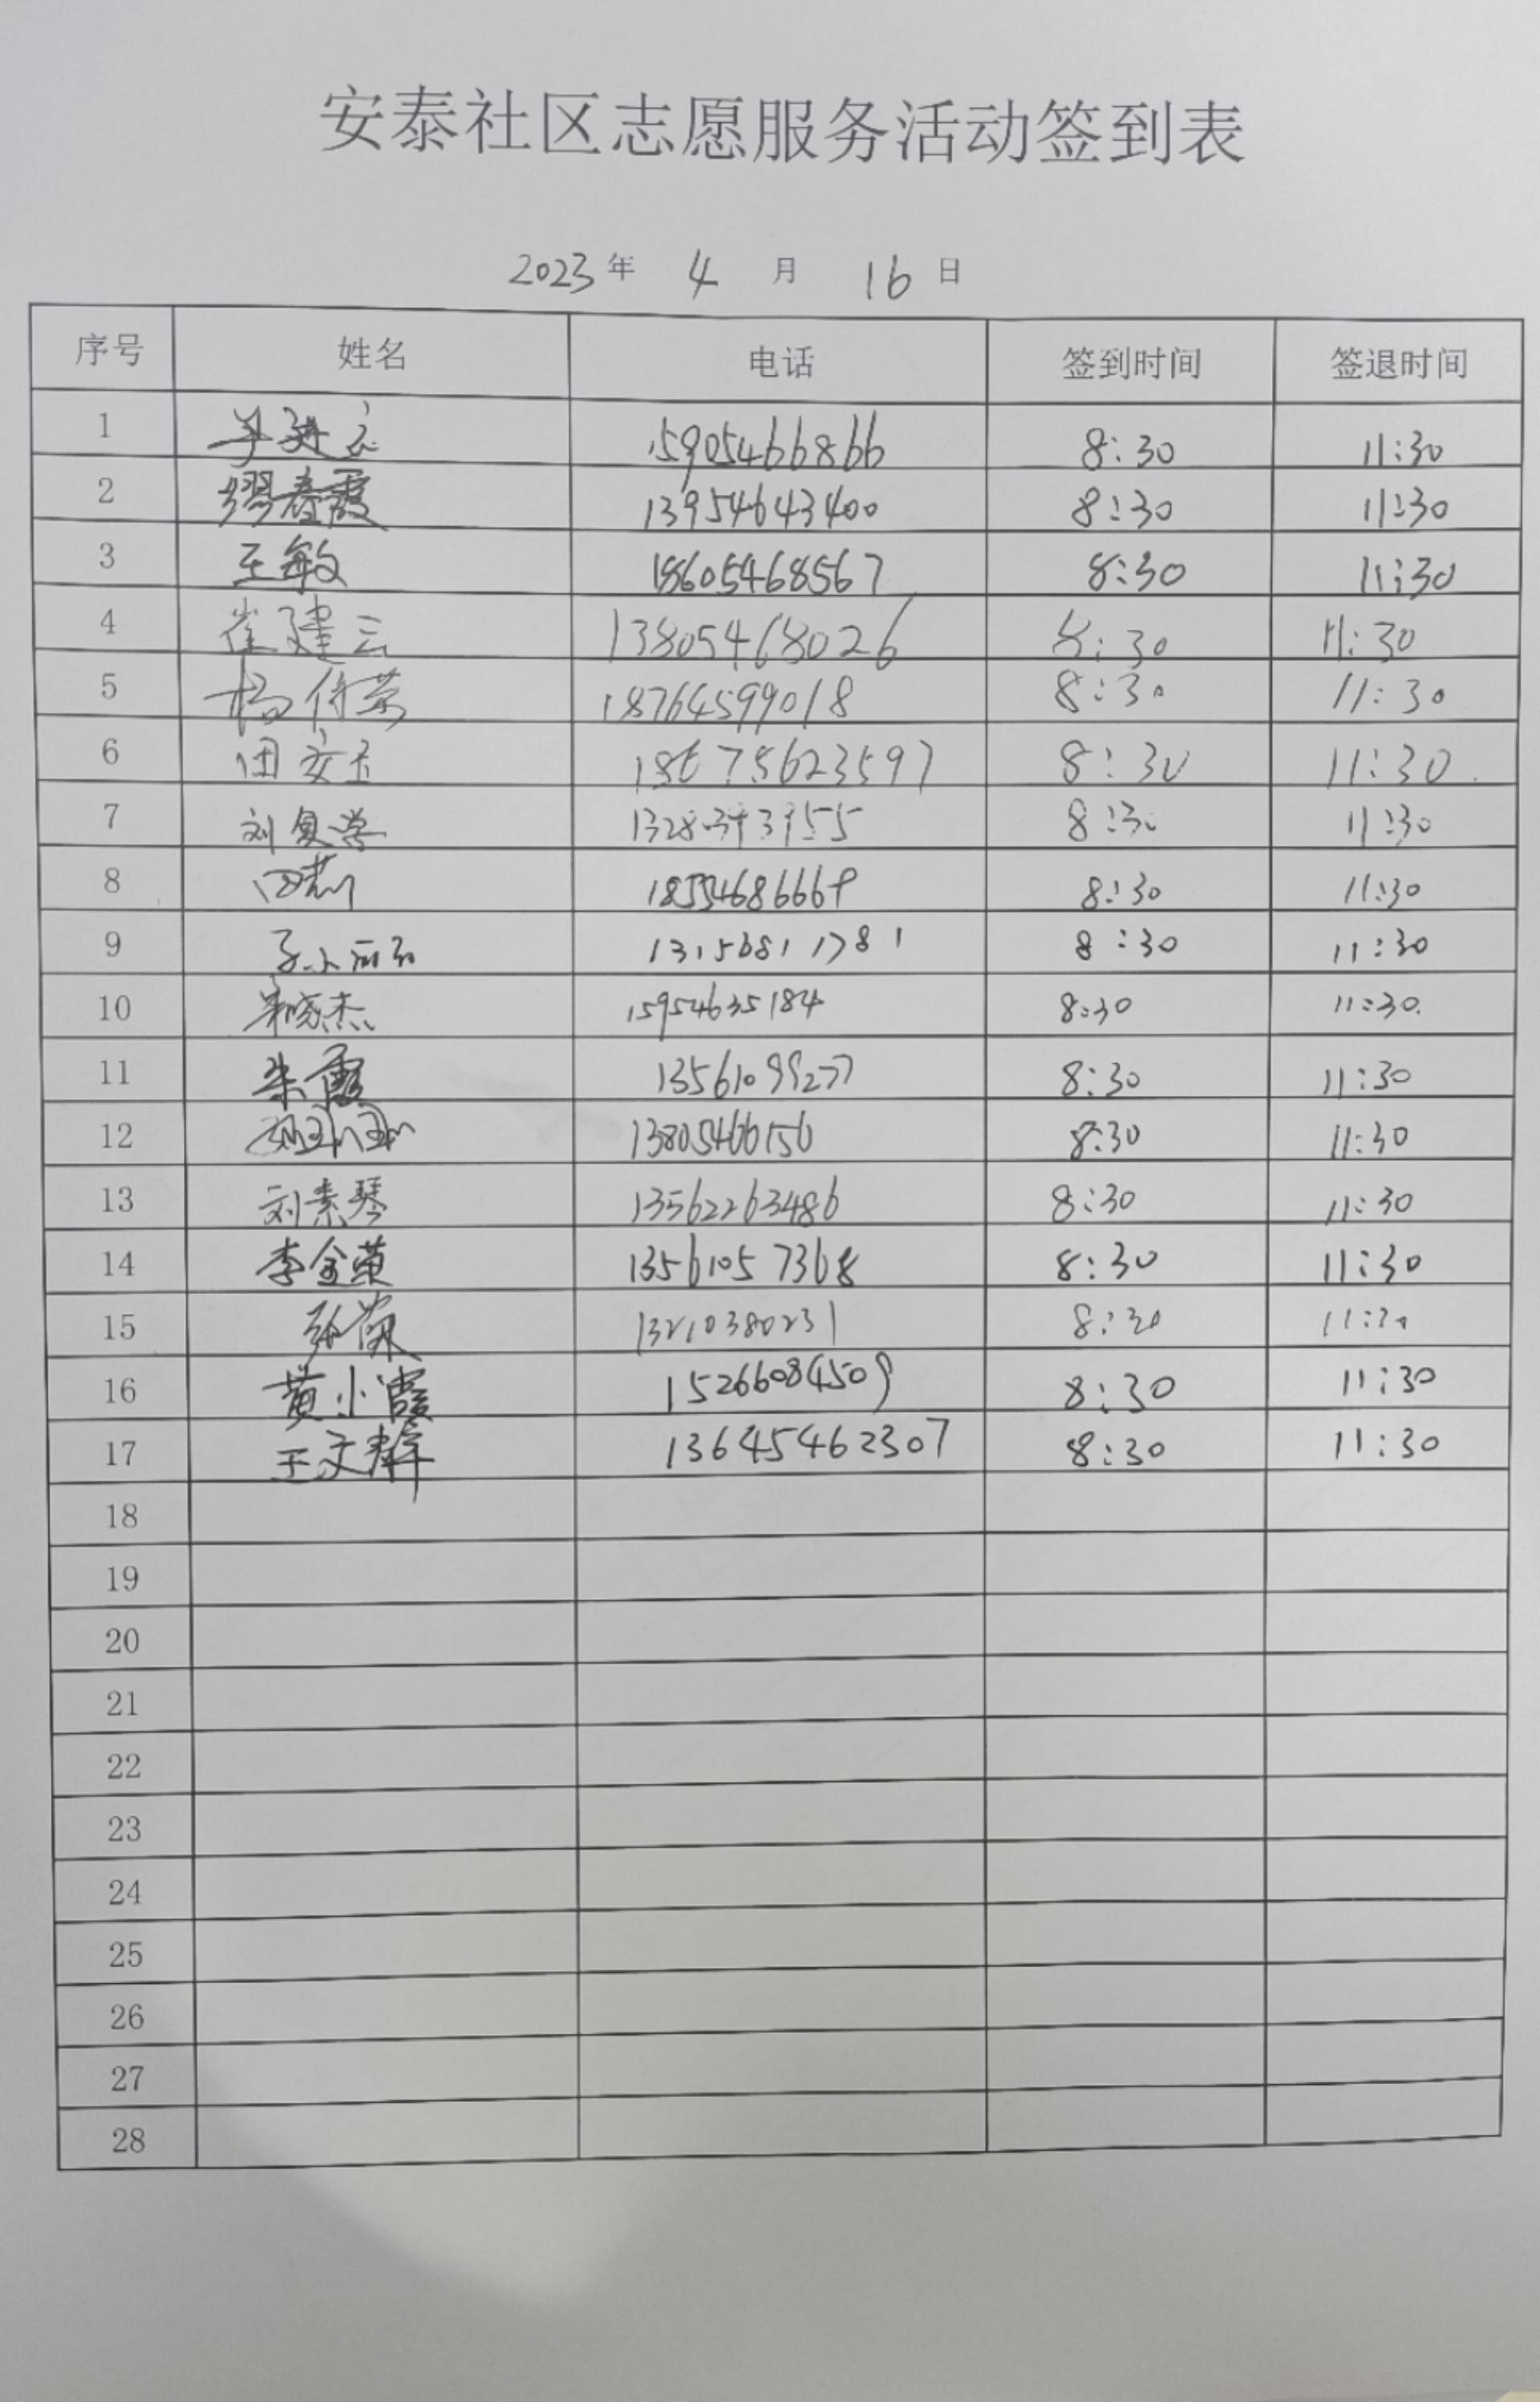 安泰社区志愿服务活动签到表
2023年 4月 16日
序号 姓名 电话 签到时间 签退时间
1 15905466866 8:30 11:30
2 缪春霞 13954643400 8:30 11:30
3 王敏 18605468567 8:30 11:30
4 崔建云 13805468026 8:30 11:30
5 杨 18764599018 8:30 11:30
6 田安玉 18675623597 8:30 11:30
7 刘复学 8:30 11:30
8 田莉 18554686669 8:30 11:30
9 13156811781 8:30 11:30
10 15954635184 8:30 11:30
11 朱霞 13561099277 8:30 11:30
12 13805466156 8:30 11:30
13 刘素琴 13562263486 8:30 11:30
14 李金英 13561057368 8:30 11:30
15 13210380231 8:30 11:30
16 黄小霞 15266084509 8:30 11:30
17 王文静 13645462307 8:30 11:30
18
19
20
21
22
23
24
25
26
27
28